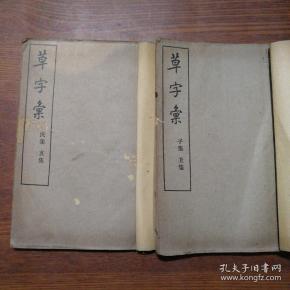 草字彙
戌集 亥集
草字彙
子集 丑集
孔夫子旧书网